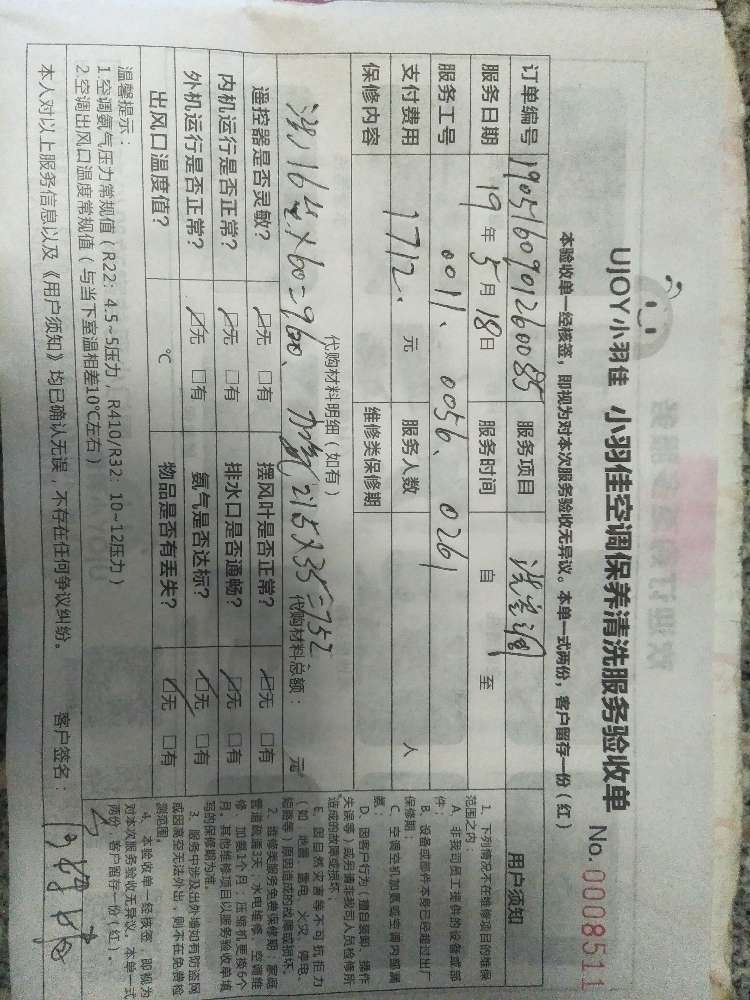 UJOY小羽佳 小羽佳空调保养清洗服务验收单 No.0008511
本验收单一经核签，即视为对本次服务验收无异议。本单一式两份，客户留存一份（红）
订单编号 1905160901260085 服务项目
服务日期 19 年 5 月 18 日 服务时间 自 至
服务工号 0011、0056、0261
支付费用 1712. 元 服务人数 人
保修内容 维修类保修期
代购材料明细（如有）
代购材料总额： 元
遥控器是否灵敏？ ☑无 □有 摆风叶是否正常？ ☑无 □有
内机运行是否正常？ ☑无 □有 排水口是否通畅？ ☑无 □有
外机运行是否正常？ ☑无 □有 氨气是否达标？ ☑无 □有
出风口温度值？ ℃ 物品是否有丢失？ ☑无 □有
温馨提示：
1.空调氨气压力常规值（R22：4.5~5压力，R410/R32：10~12压力）
2.空调出风口温度常规值（与当下室温相差10℃左右）
本人对以上服务信息以及《用户须知》均已确认无误，不存在任何争议纠纷。 客户签名：
用户须知
1、下列情况不在维修项目的维保
范围之内：
A、非我司员工提供的设备或部
件；
B、设备或部件本身已经超过出厂
保修期；
C、空调空机加氨或空调内部漏
氨；
D、因客户行为（擅自装卸、操作
失误等）或另请非我司人员检修所
造成的故障或损坏；
E、因自然灾害等不可抗拒力
（如：地震、雷电、火灾、停电、
短路等）原因造成的故障或损坏。
2、维修类服务免费保修期：家庭
管道疏通3天，水电维修、空调维
修、加氨1个月，压缩机更换6个
月，其他维修项目以服务验收单填
写的保修期为准。
3、服务中涉及出外墙如有防盗网
或因高空无法外出，则不在免费检
测范围。
4、本验收单一经核签，即视为
对本次服务验收无异议。本单一式
两份，客户留存一份（红）。